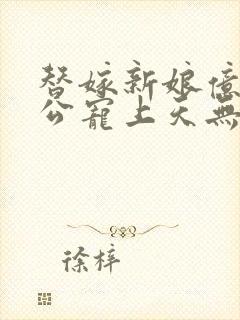 替嫁新娘億
公寵上天無
徐梓